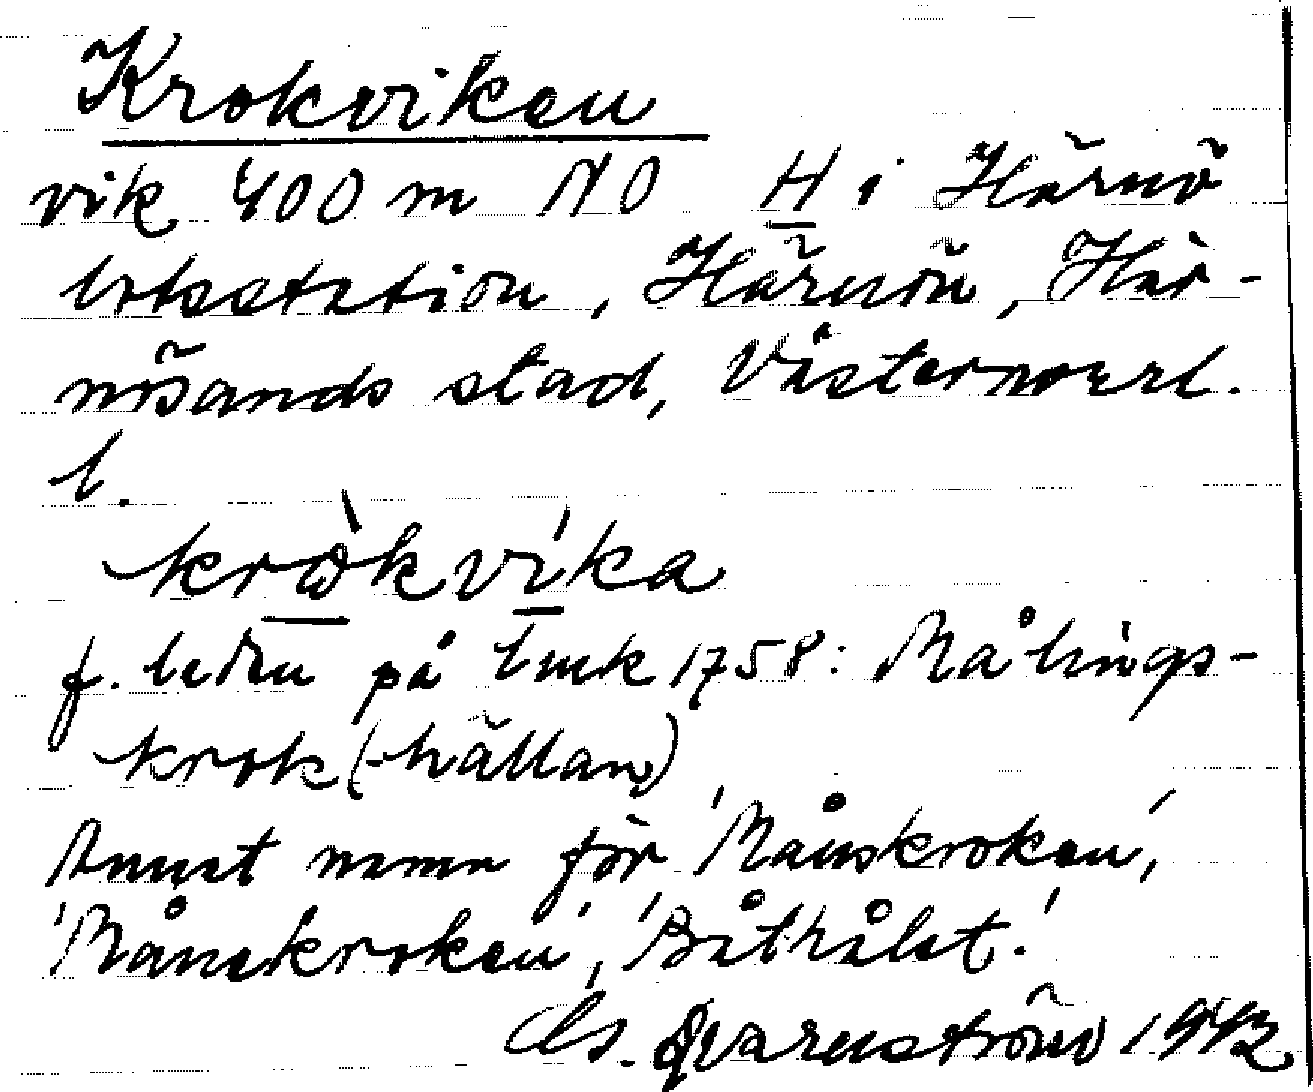 Krokviken
vik 400 m NO H i Härnö
lotsstation, Härnön, Här-
nösands stad, Västernorrl.
l.
kròkvíka
f. leden på lmk 1758: Målings-
krok (-hällan)
Annat namn för 'Månskroken',
'Månskroken', 'Båthålet.'
Cs. Qvarnström 1942